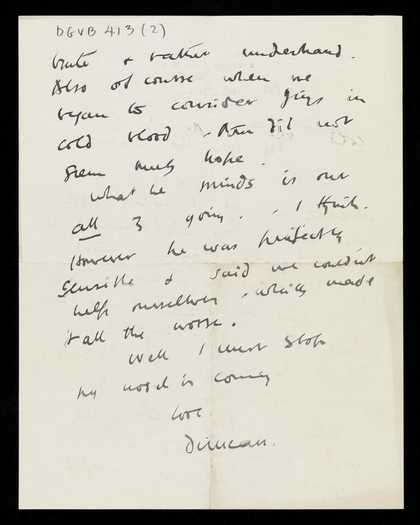 DGVB 413 (2)
brute & rather underhand.
Also of course when we
began to consider things in
cold blood, there did not
seem much hope.
What he minds is our
all 3 going, I think.
However he was perfectly
sensible & said we couldn't
help ourselves, which made
it all the worse.
Well I must stop
my model is coming
love
Duncan.